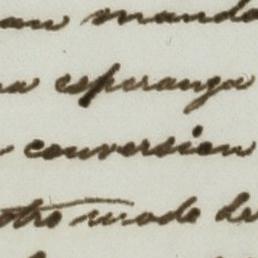 an mando
a esperanza
conversion
otro modo de